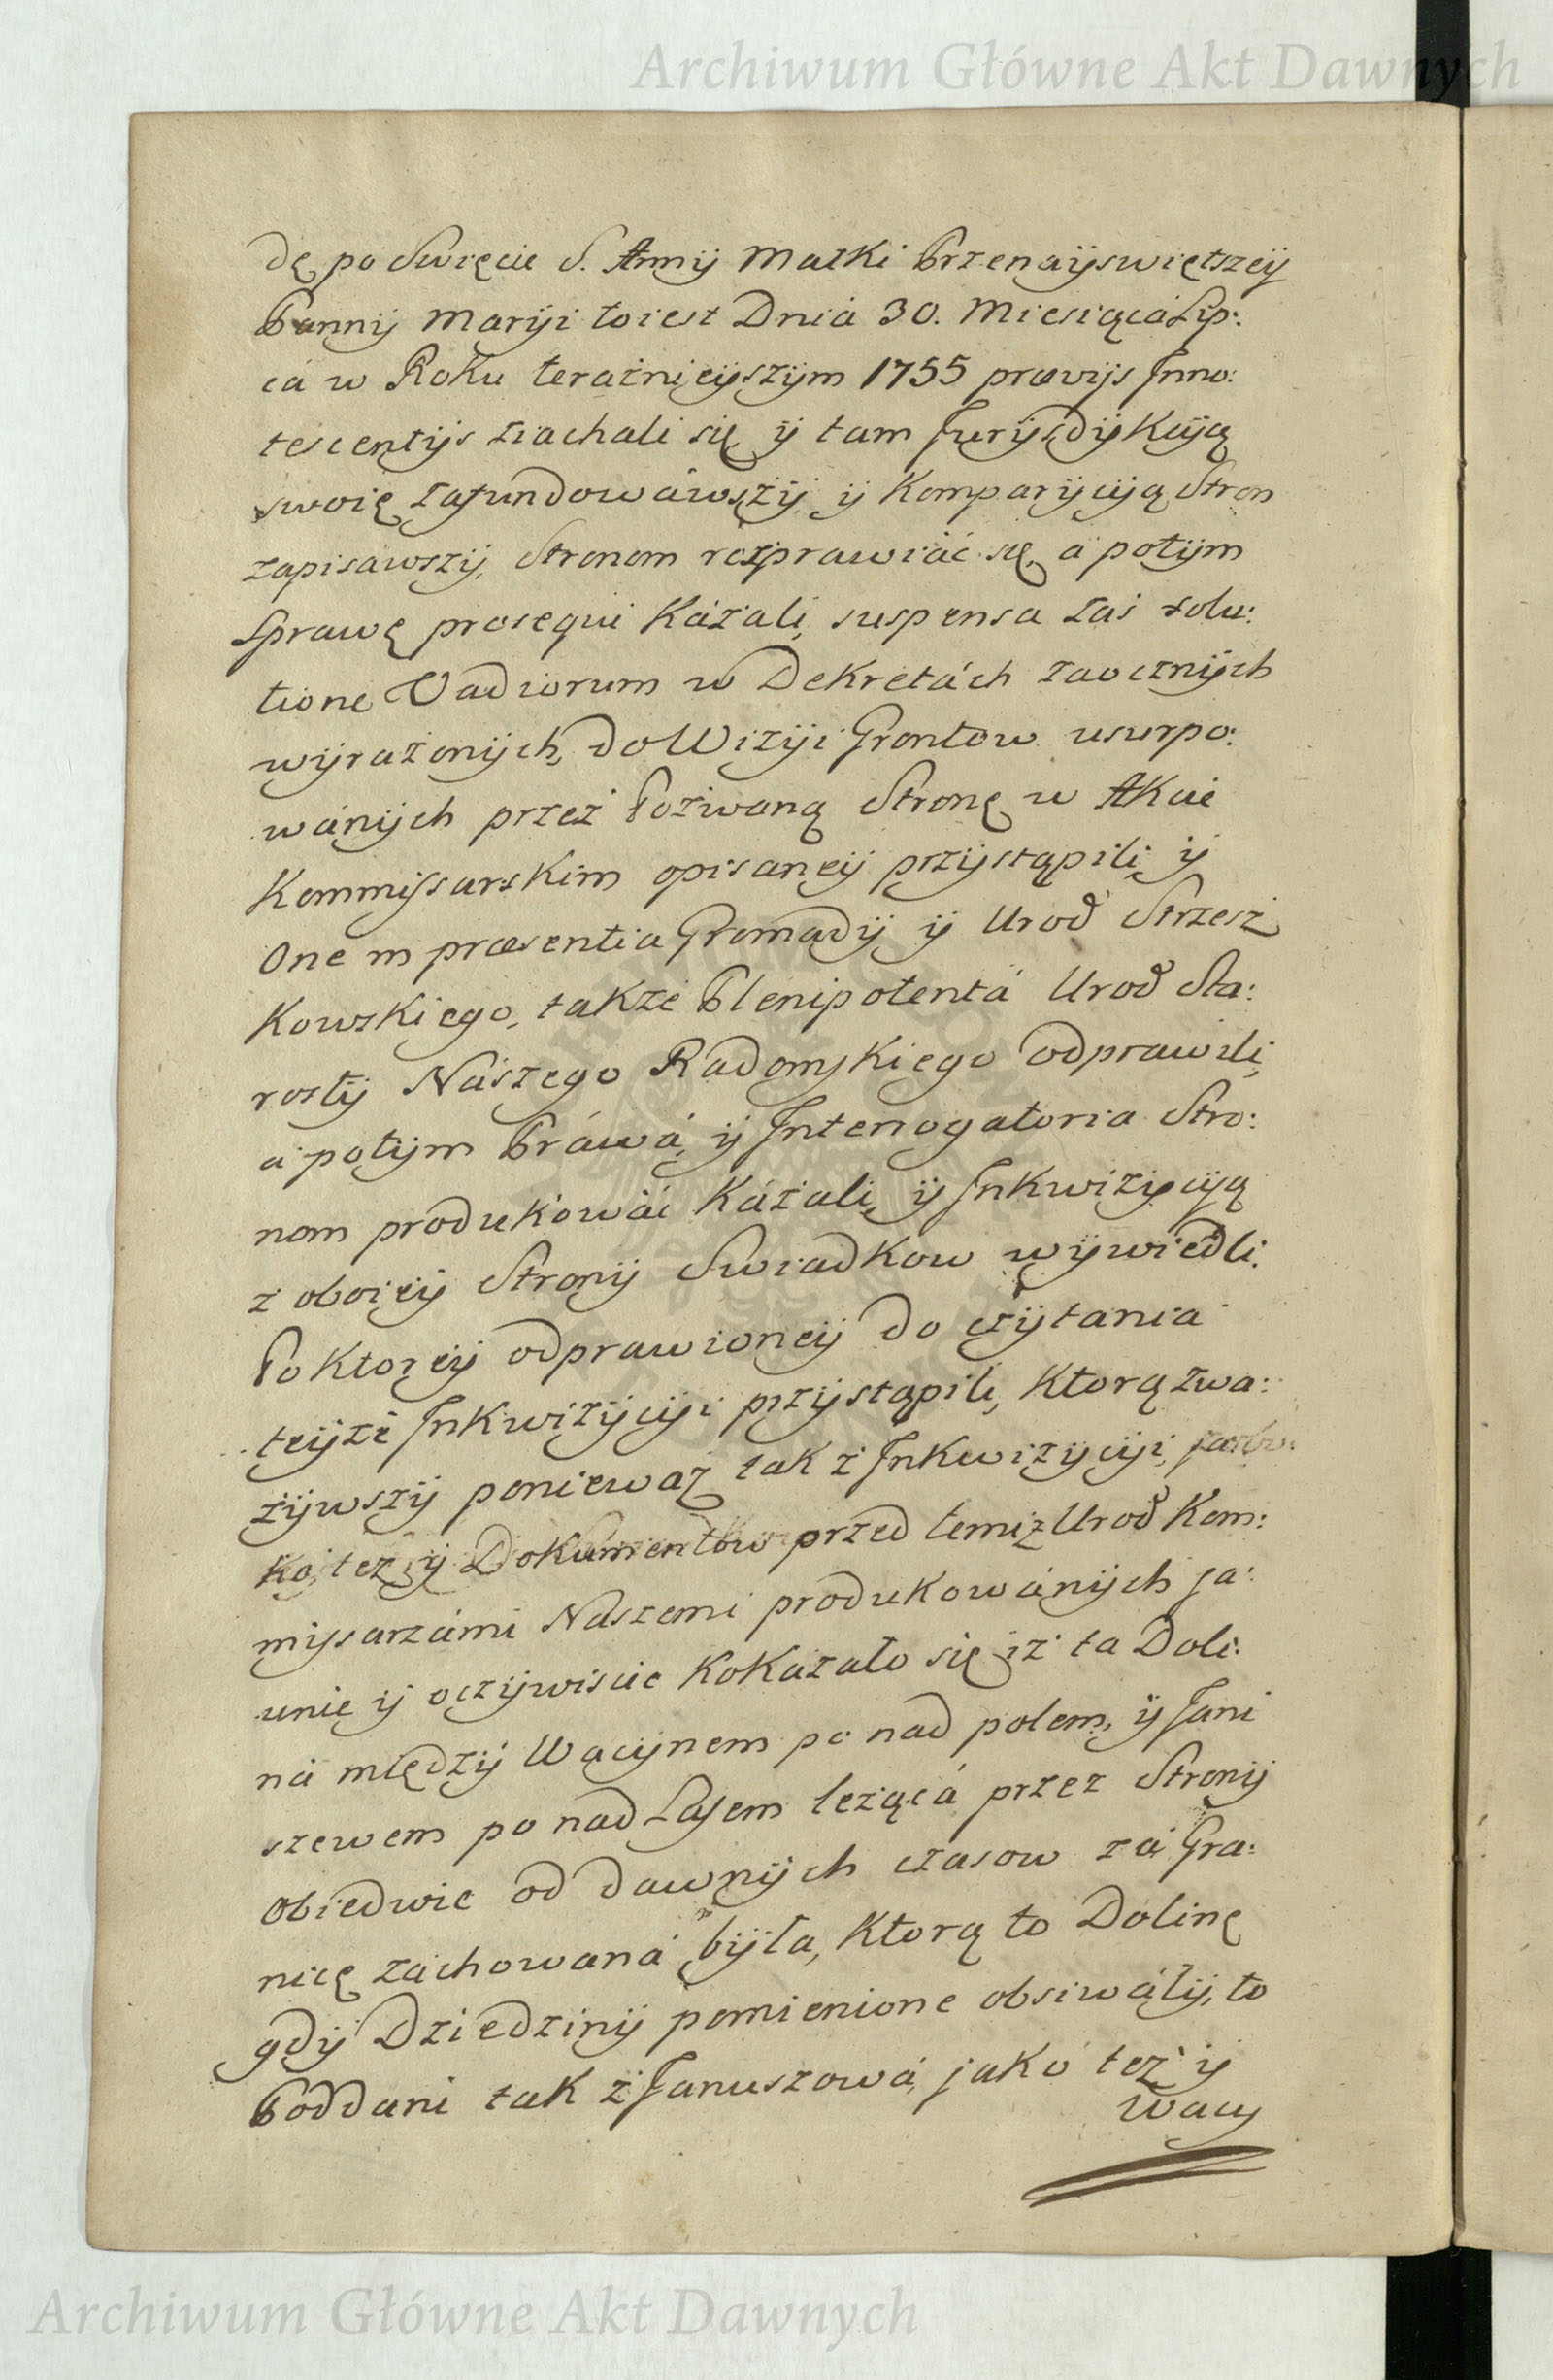 Archiwum Główne Akt Dawnych
dę po Swięcie S. Anny Matki Przenayswiętszey
Panny Maryi to iest Dnia 30. Miesiąca Lip:
ca w Roku teraźnieyszym 1755 prævijs Inno:
tescentijs ziachali się y tam Jurysdykcyą
swoię zafundowawszy y Komparycyą Stron
zapisawszy, Stronom rozprawiać się, a potym
Sprawę prosequi Kazali, suspensa zaś solu:
tione Vadiorum w Dekretach zaocznych
wyrażonych, do Wizyi Grontow usurpo:
wanych przez Pozwaną Stronę w Akcie
Kommissarskim opisaney przystąpili, y
One in præsentia Gromady y Urod Strzesz
Kowskiego, także Plenipotenta Urod Sta:
rosty Naszego Radomskiego odprawili,
a potym Prawa, y Interrogatoria Stro:
nom produkować Kazali, y Inkwizycyą
z oboiey Strony Swiadkow wywiedli.
Po Ktorey odprawioney do czytania
teyże Inkwizycyi przystąpili, Ktorą zwa:
żywszy ponieważ tak z Inkwizycyi, jako
też y Dokumentow przed temiż Urod Kom:
missarzami Naszemi produkowanych ja:
wnie y oczywiscie KoKazało się iż ta Doli:
na między Wacynem po nad polem, y Jani
szewem po nad Lasem leżąca przez Strony
Obiedwie od dawnych czasow za Gra:
nicę zachowana była, Ktorą to Dolinę
gdy Dziedziny pomienione obsiwały, to
Poddani tak z Januszowa, jako też y
Wacy
Archiwum Główne Akt Dawnych